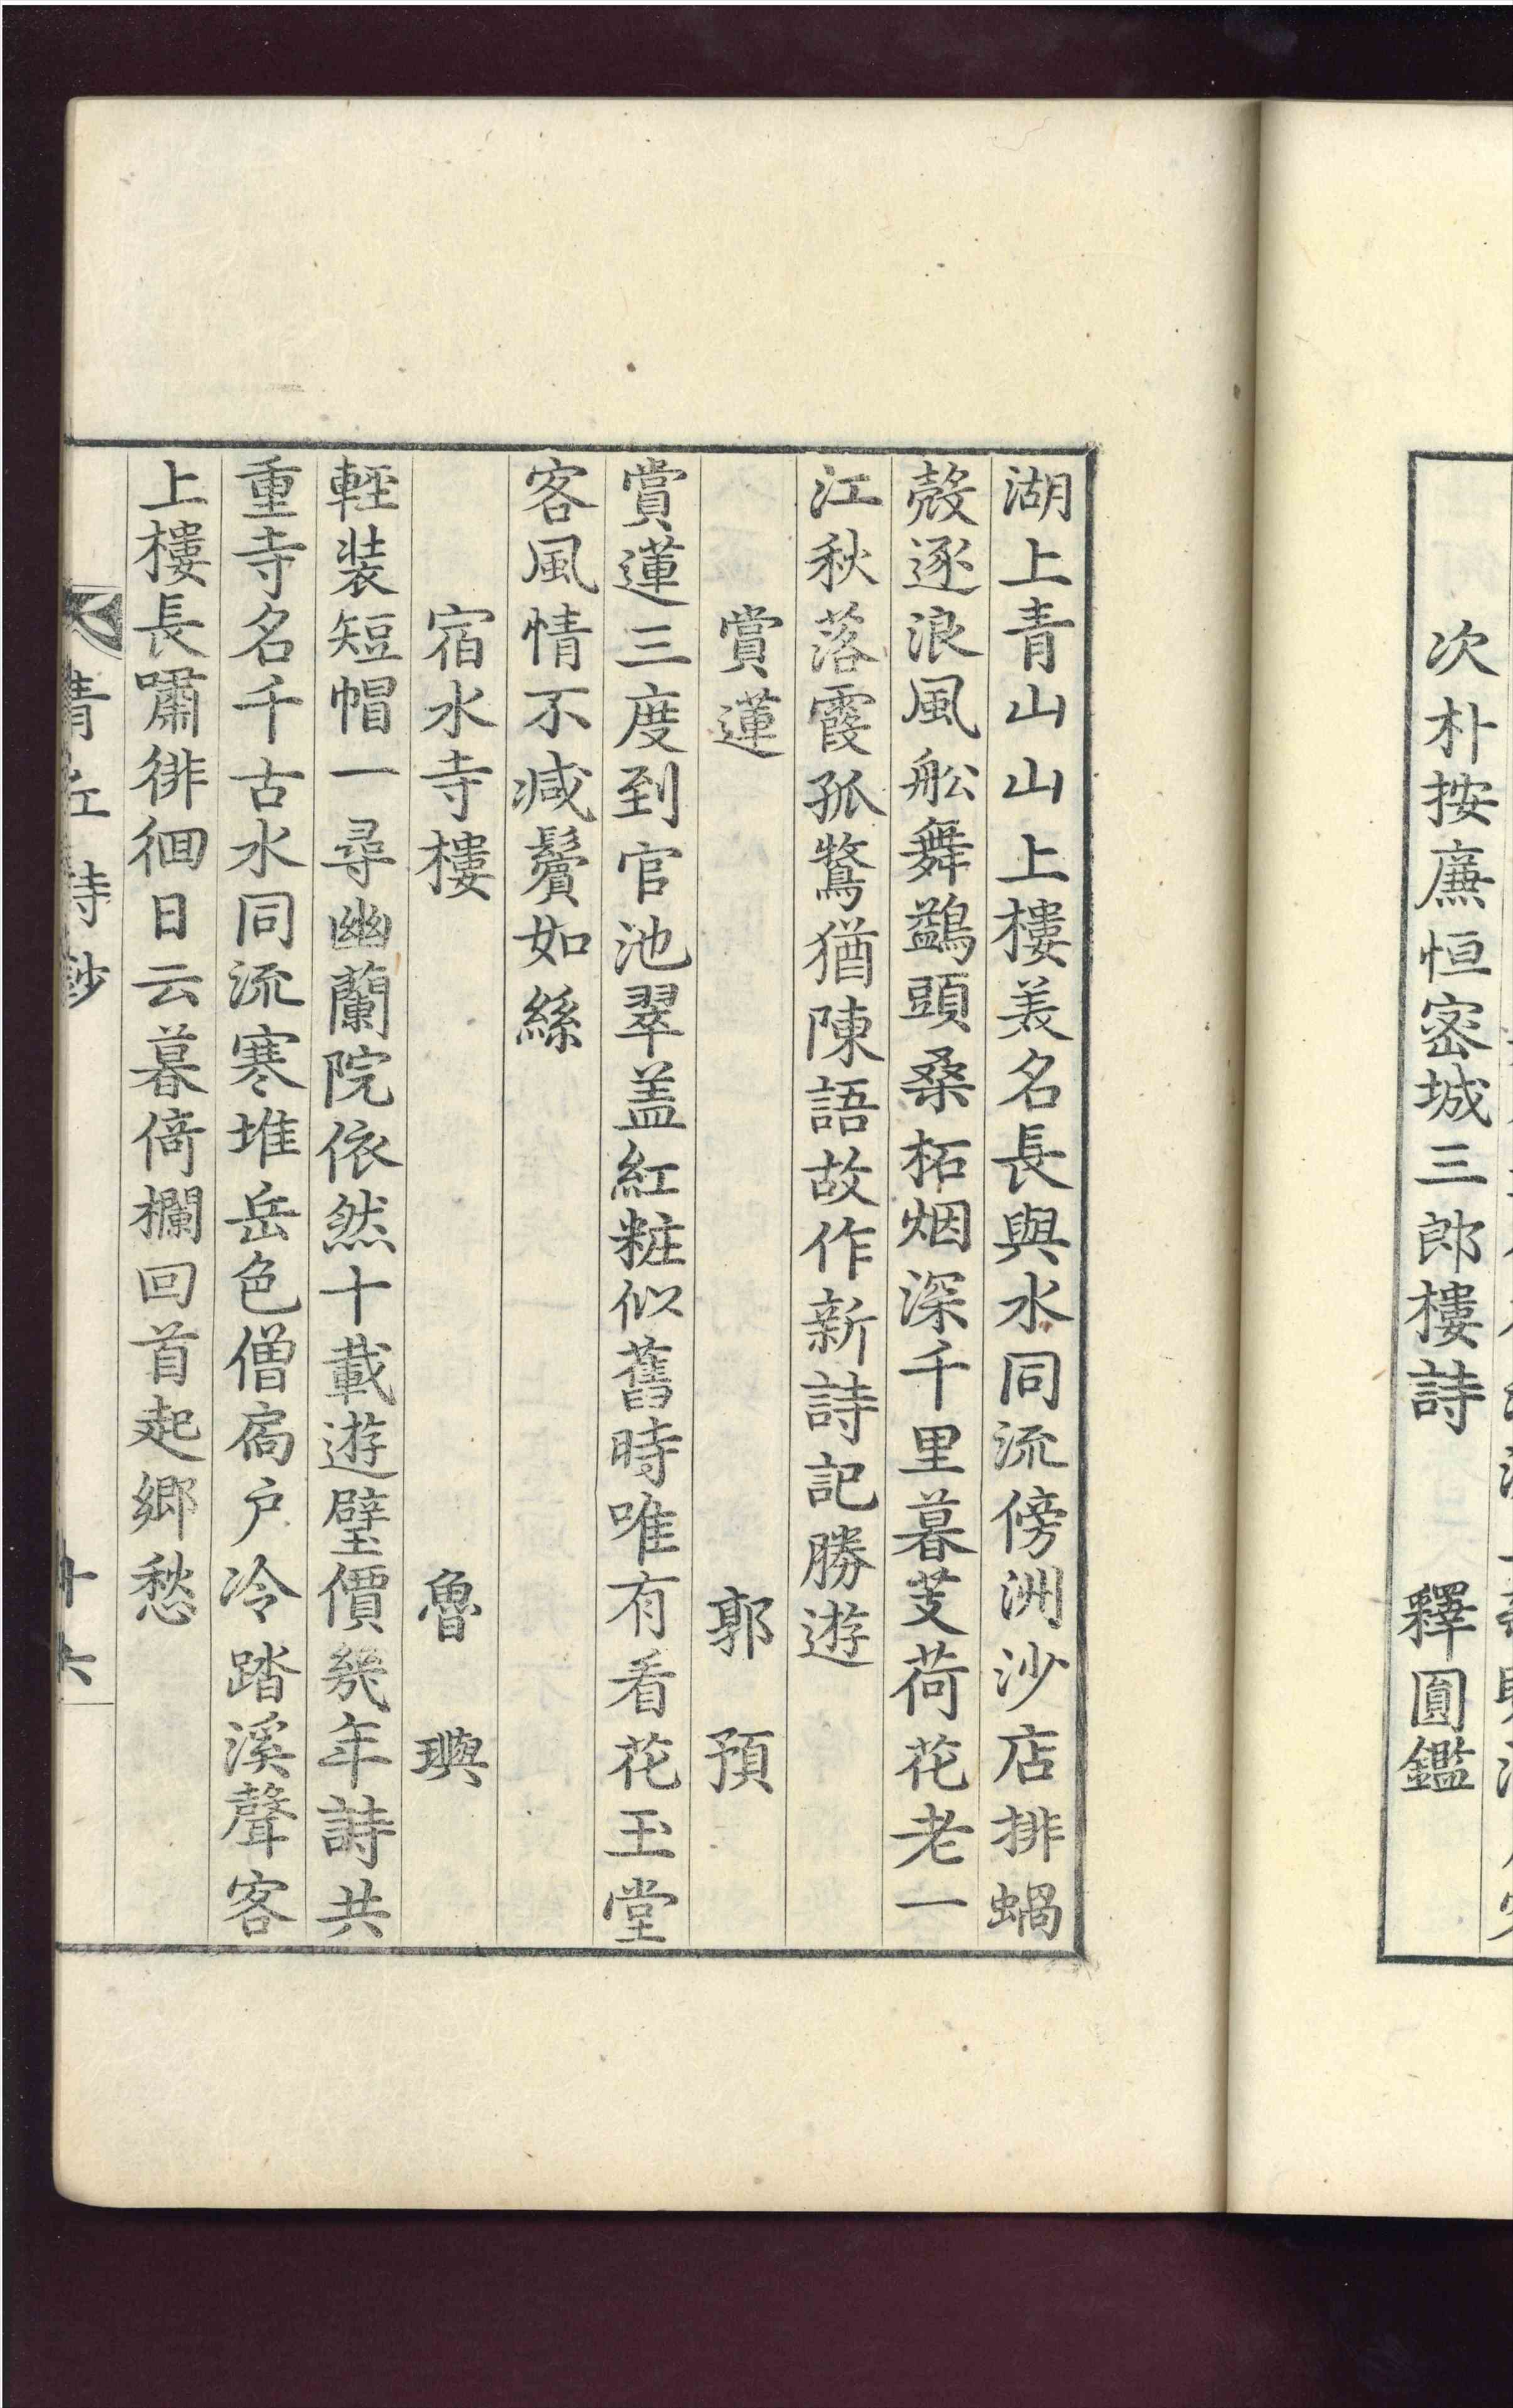 次朴按廉恒密城三郎樓詩　釋圓鑑
湖上青山山上樓美名長與水同流傍洲沙店排蝸
殼逐浪風舩舞鷁頭桑柘烟深千里暮芰荷花老一
江秋落霞孤鶩猶陳語故作新詩記勝遊
賞蓮　郭預
賞蓮三度到官池翠盖紅粧似舊時唯有看花玉堂
客風情不减鬢如絲
宿水寺樓　魯璵
輕装短帽一尋幽蘭院依然十載遊璧價幾年詩共
重寺名千古水同流寒堆岳色僧扄户冷踏溪聲客
上樓長嘯徘徊日云暮倚欄回首起鄉愁
青丘詩鈔　十六